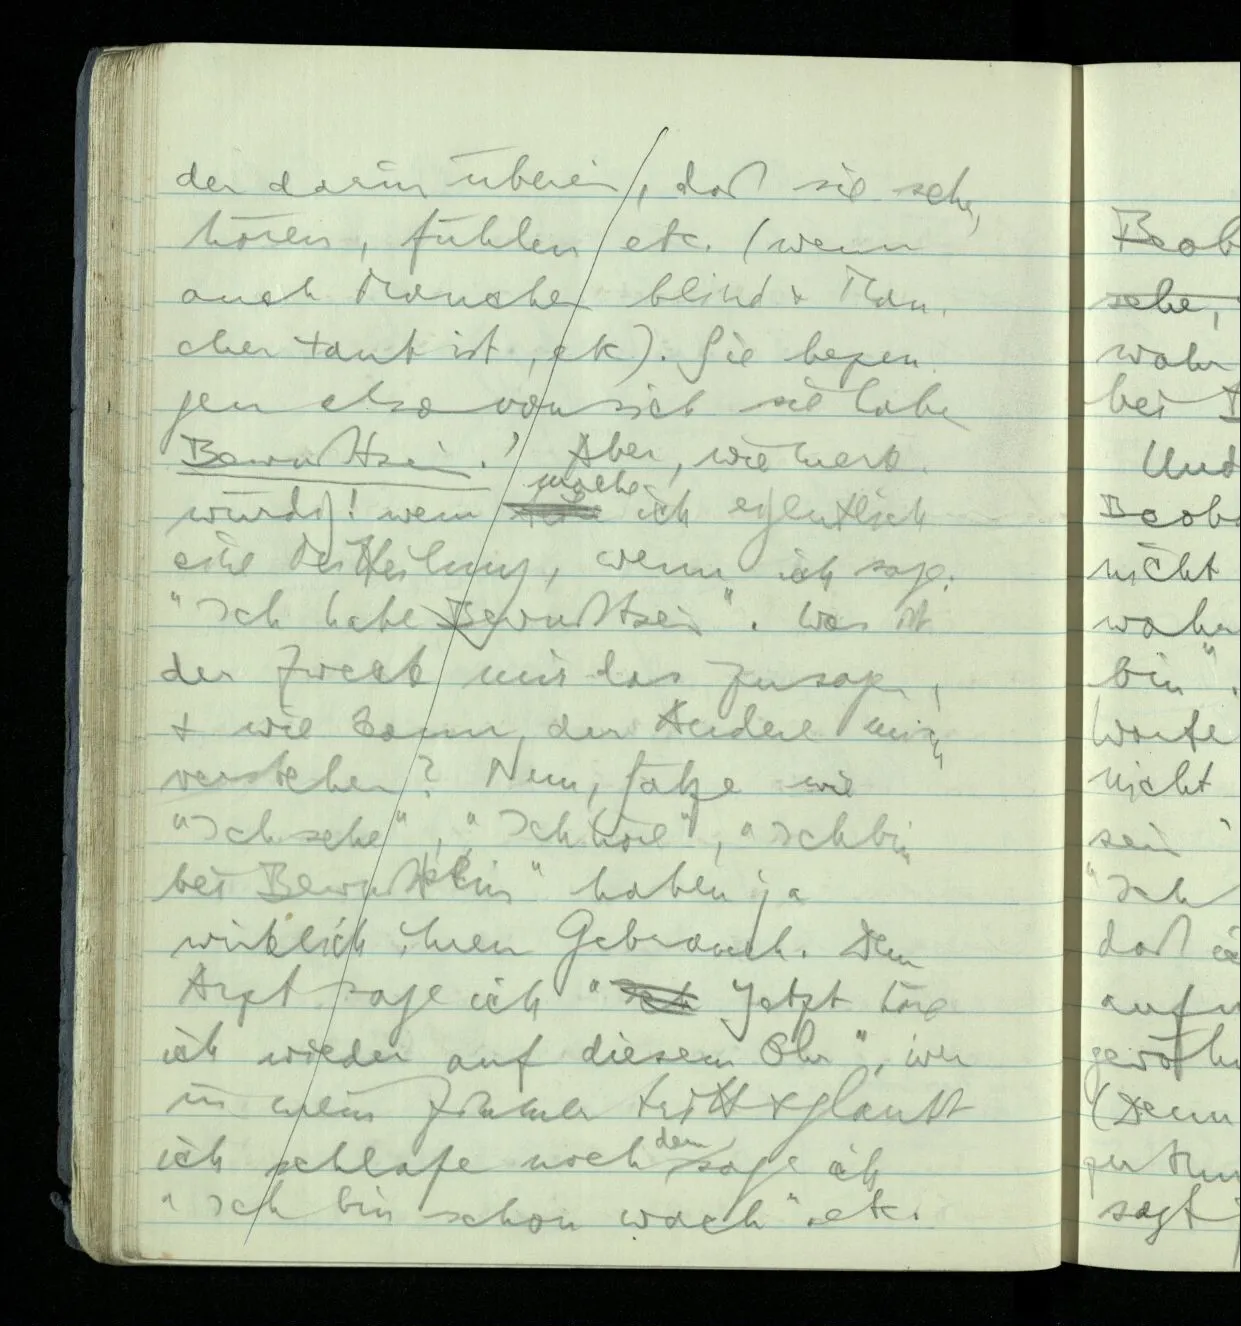 der darin überein, daß sie sehen,
hören, fühlen etc. (wenn
auch Mancher blind & Man-
cher taub ist, etc). Sie bezeu-
gen also von sich sie haben
Bewußtsein.' Aber, wie merk-
würdig! wem mache ich eigentlich
eine Mitteilung, wenn ich sage:
"Ich habe Bewußtsein". Was ist
der Zweck mir das zu sagen,
& wie kann der Andere mich
verstehen? Nun, Sätze wie
"Ich sehe", "Ich höre", "Ich bin
bei Bewußtsein" haben ja
wirklich ihren Gebrauch. Dem
Arzt sage ich "Jetzt höre
ich wieder auf diesem Ohr", wer
in mein Zimmer tritt & glaubt
ich schlafe noch dem sage ich
"Ich bin schon wach". etc.
Beob
sehe,
wahr
bei B
Und
Beoba
nicht
wahr
bin".
Worte
nicht
sein
"Ich
daß
aufm
gewöhn
(Denn
sagt